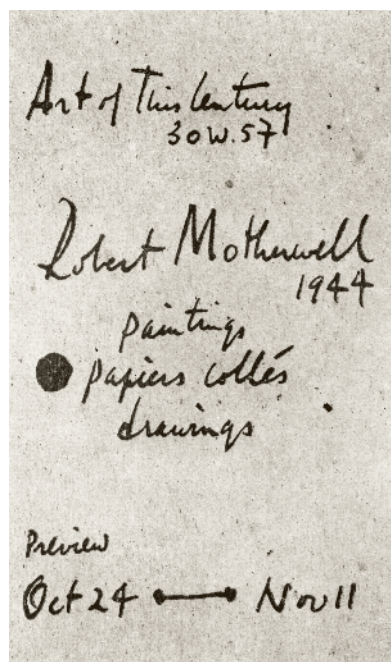 Art of This Century
30 W. 57
Robert Motherwell
1944
paintings
papiers collés
drawings
Preview
Oct 24 Nov 11